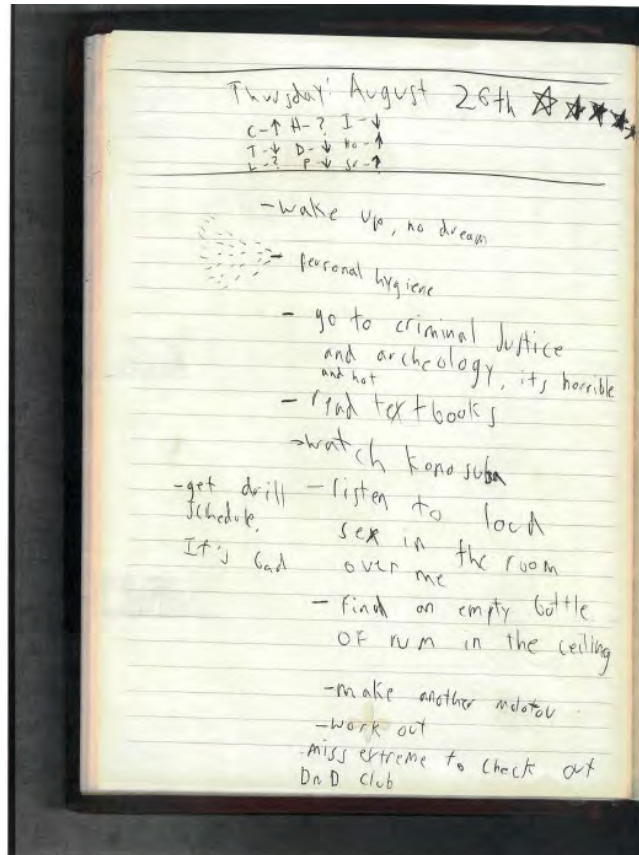 Thursday: August 26th
C-↑ H-? I-↓
T-↓ D-↓ Ho-↑
L-? P-↓ Sr-↑
-wake up, no dream
- personal hygiene
- go to criminal Justice
and archeology, its horrible
and hot
- read textbooks
-watch konosuba
-get drill
schedule.
It's bad
-listen to loud
sex in the room
over me
- find an empty bottle
OF rum in the ceiling
-make another molotov
-work out
-miss extreme to check out
DnD club